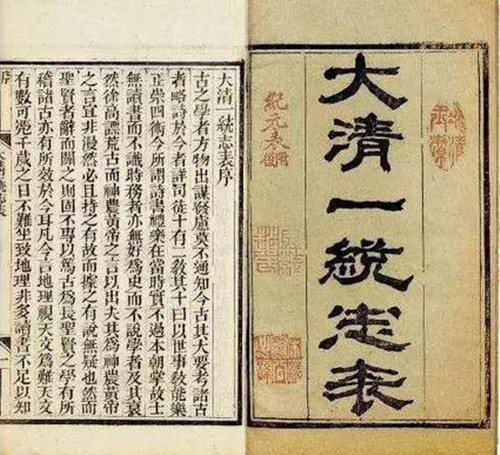 大清一統志表
大清一統志表序
古之學者方物出謀發慮莫不通知今古其大要考諸古
者略於今者詳司徒十有二敎其十曰以世事敎能樂
正崇四術今所謂詩書禮樂在當時實不過本朝掌故士
無讀書而不識時務者亦無好爲史而不說學者及其衰
然高譚荒古而神農黃帝之言以出夫其爲神農黃帝
之言宜非漫然必且持之有故而據之有說無疑也然而
聖賢者辭而闢之則固不專以篤古爲長聖賢之學有所
稽諸古亦有所效於今耳凡今言地理視天文爲難天文
有數可千歲之日不難坐致地理非多讀書不足以知